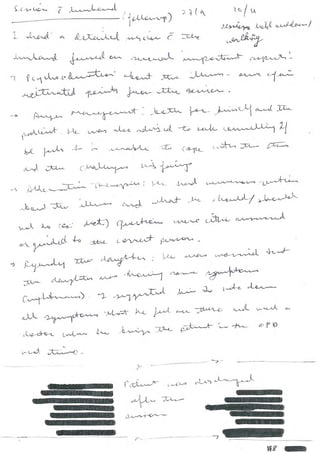 Session & husband (followup) 27/9 10/11
I had a detailed session & the
husband focused on several important aspects:
→ Psychoeducation about the illness - once again
reiterated points from other session.
→ Anger Management: both for himself and the
patient. He was also advised to seek counselling if
he feels he is unable to cope with the
and the challenges
→ Alternative Therapies: He had numerous questions
about the illness and what he should/should
not do (ex: diet). Questions were either answered
or guided to the correct person.
→ Regarding the daughter: He was worried that
the daughter was having some symptoms
(nightmares). I suggested him to note down
all symptoms that he feel are there and meet a
doctor when he brings the patient in the OPD
next time.
Patient was discharged
after this
session